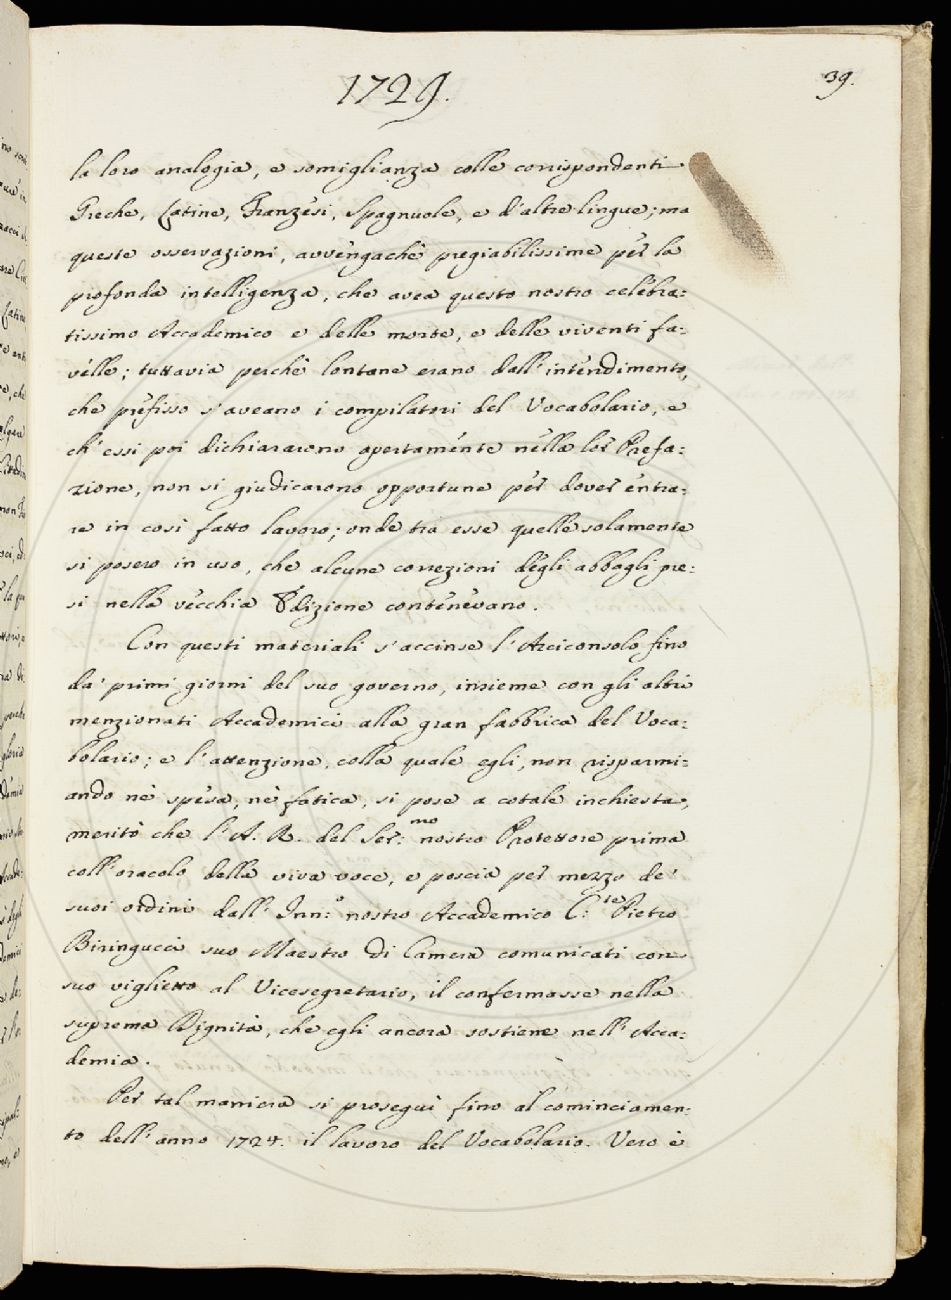 1729.
39.
la loro analogia, e somiglianza colle corrispondenti
Greche, Latine, Franzesi, Spagnuole, e d'altre lingue; ma
queste osservazioni, avvengachè pregiabilissime per la
profonda intelligenza, che avea questo nostro celebra:
tissimo Accademico e delle morte, e delle viventi fa:
velle; tuttavia perchè lontane erano dall'intendimento,
che prefisso s'aveano i compilatori del Vocabolario, e
ch'essi poi dichiararono apertamente nella lor Prefa:
zione, non si giudicarono opportune per dover entra:
re in così fatto lavoro; onde tra esse quelle solamente
si posero in uso, che alcune correzioni degli abbagli pre:
si nella vecchia Edizione contenevano.
Con questi materiali s'accinse l'Arciconsolo fino
da' primi giorni del suo governo, insieme con gli altri
menzionati Accademici alla gran fabbrica del Voca:
bolario; e l'attenzione, colla quale egli, non risparmi:
ando nè spesa, nè fatica, si pose a cotale inchiesta,
meritò che l'A. R. del Ser:mo nostro Protettore prima
coll'oracolo della viva voce, e poscia per mezzo de'
suoi ordini dall'Inn:o nostro Accademico C:te Pietro
Biringucci suo Maestro di Camera comunicati con
suo viglietto al Vicesegretario, il confermasse nella
suprema Dignità, che egli ancora sostiene nell'Acca:
demia.
Per tal maniera si proseguì fino al cominciamen:
to dell'anno 1724. il lavoro del Vocabolario. Vero è